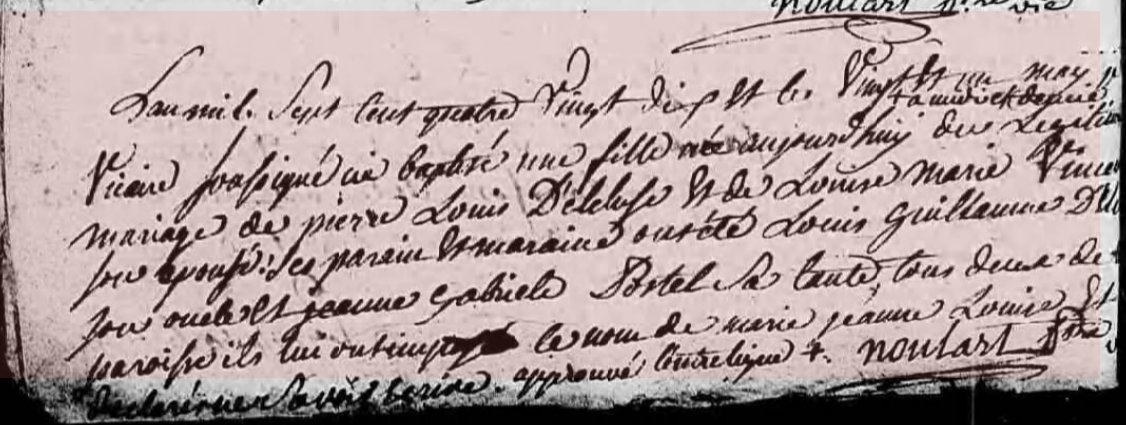 noulart p.tre vic
L'an mil sept cent quatre Vingt dix Et le Vingt Et un may
+ a midi et demie
Vicaire soussigné ai baptisé une fille née aujourd'huy du Legitim
mariage de pierre Louis Délcluse Et de Louise marie Vincen
son épouse: ses parain Et maraine ont été Louis Guillaume Dél
son oncle Et jeanne Gabriele Postel sa tante, tous deux de
paroisse ils lui ont imposé le nom de marie jeanne Louise Et
déclaré ne savoir écrire. approuvé l'entreligne +. noulart p.tre v